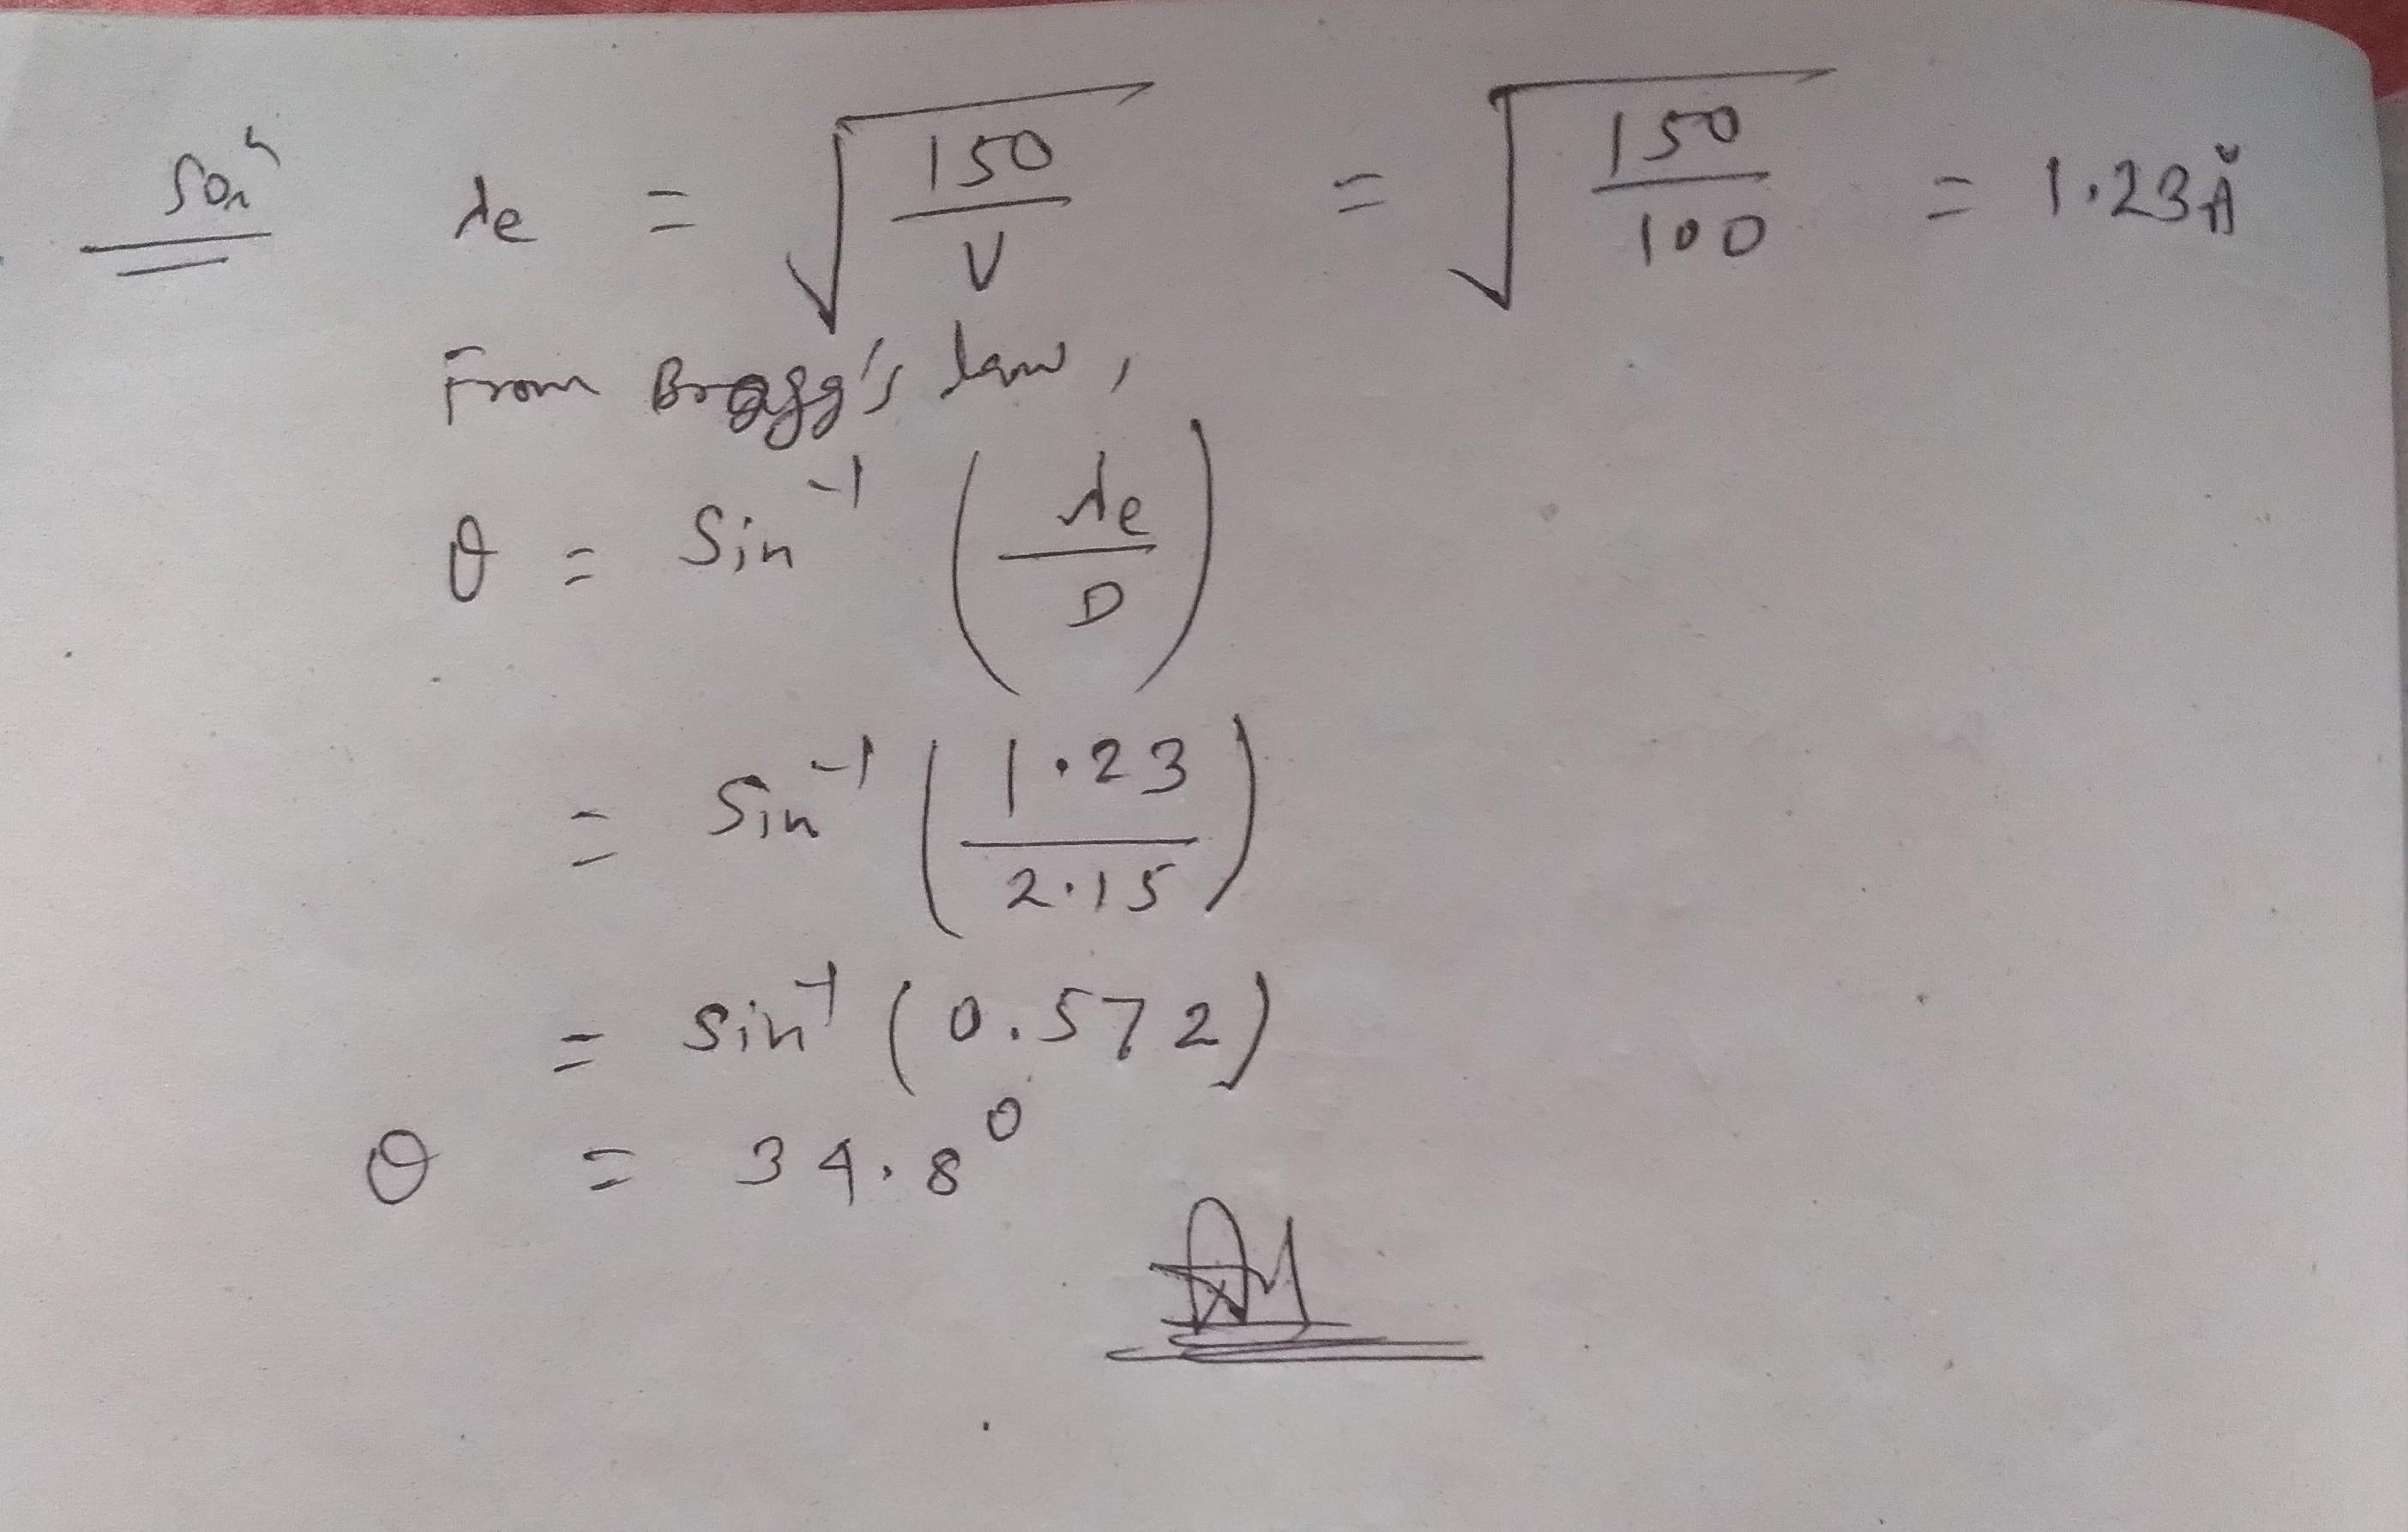 Soln λe = √(150/V) = √(150/100) = 1.23Å
From Bragg's law,
θ = Sin⁻¹ (λe/D)
= Sin⁻¹ (1.23/2.15)
= sin⁻¹ (0.572)
θ = 34.8⁰